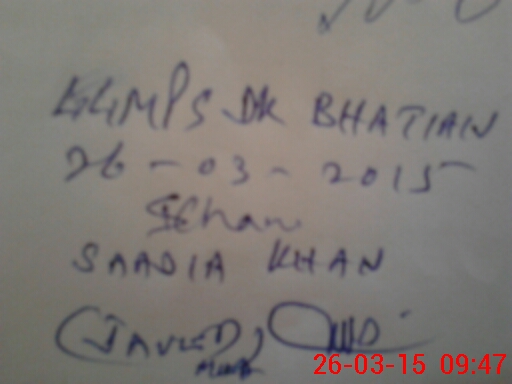 GGMPS DK BHATIAN
26-03-2015
SAADIA KHAN
(JAVED)
26-03-15 09:47